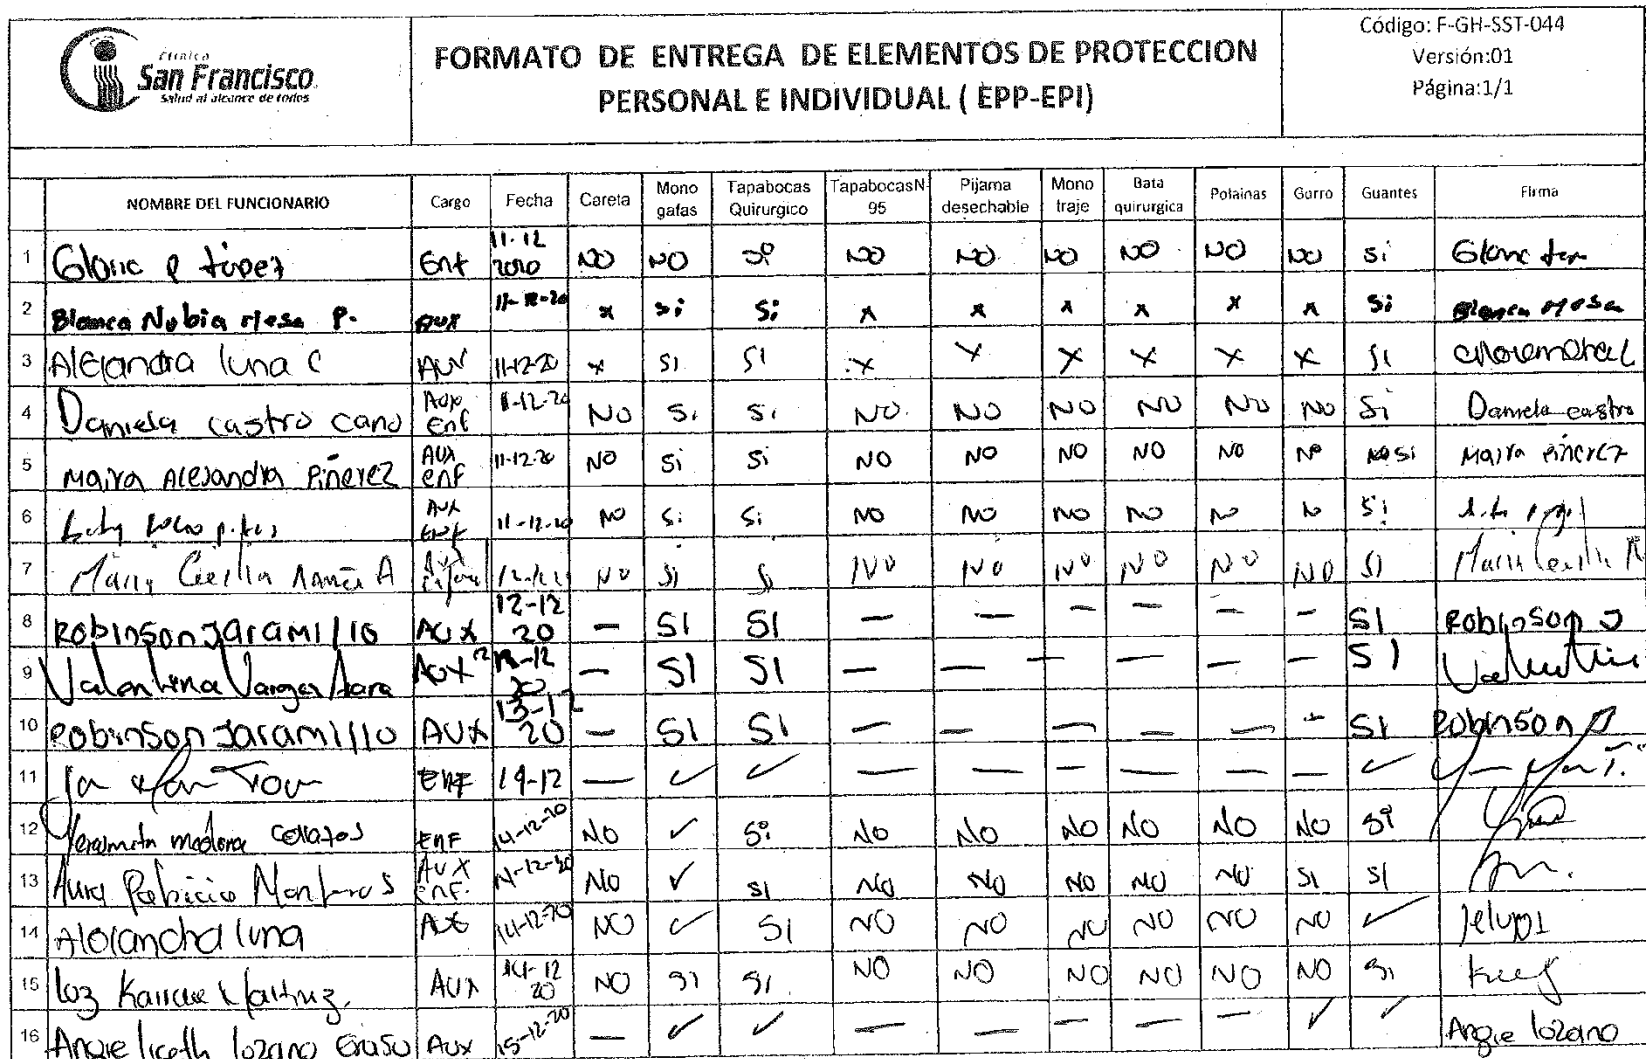 Clínica
San Francisco.
Salud al alcance de todos
FORMATO DE ENTREGA DE ELEMENTOS DE PROTECCION
PERSONAL E INDIVIDUAL ( EPP-EPI)
Código: F-GH-SST-044
Versión:01
Página:1/1
NOMBRE DEL FUNCIONARIO Cargo Fecha Careta Mono gafas Tapabocas Quirurgico TapabocasN-95 Pijama desechable Mono traje Bata quirurgica Polainas Gorro Guantes Firma
1 Gloria P López Enf 11-12 2020 NO NO Si NO NO NO NO NO NO Si
2 Blanca Nubia Mesa P. Aux 11-12-20 x Si Si x x x x x x Si Blanca Mesa
3 Alejandra luna C Aux 11-12-20 x SI SI x x x x x x SI
4 Daniela castro cano Aux enf 11-12-20 NO Si Si NO NO NO NO NO NO Si Daniela castro
5 Maira Alejandra Piñerez Aux enf 11-12-20 NO Si Si NO NO NO NO NO NO Si Maira Piñerez
6 Aux Enf 11-12-20 NO Si Si NO NO NO NO NO NO Si
7 Maria Cecilia A NO Si Si NO NO NO NO NO NO SI Maria Cecilia
8 Robinson Jaramillo AUX 12-12 20 — SI SI — — — — — — SI Robinson J
9 Valentina Vargas AUX 12-12 20 — SI SI — — — — — — SI
10 Robinson Jaramillo AUX 13-12 20 — SI SI — — — — — — SI Robinson J
11 ENF 14-12 — ✓ ✓ — — — — — — ✓
12 Enf 14-12-20 NO ✓ Si NO NO NO NO NO NO Si
13 Aura Patricia Aux enf. 14-12-20 NO ✓ SI NO NO NO NO NO SI SI
14 luna Aux 14-12-20 NO ✓ SI NO NO NO NO NO NO ✓
15 Luz AUX 14-12 20 NO SI SI NO NO NO NO NO NO SI
16 Angie liceth lozano Eraso Aux 15-12-20 — ✓ ✓ — — — — — ✓ ✓ Angie lozano